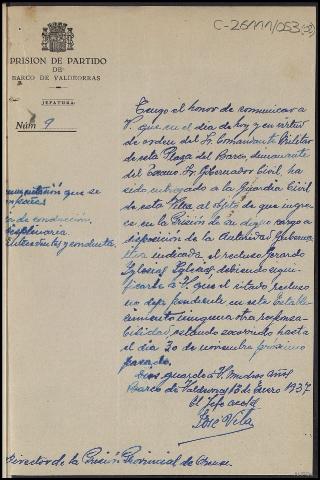 C-26111/053
PRISION DE PARTIDO
DE
BARCO DE VALDEORRAS
JEFATURA
Núm 9
Tengo el honor de comunicar a
V. que en el día de hoy y en virtud
de orden del Sr. Comandante Militar
de esta Plaza del Barco, dimanante
del Excmo Sr. Gobernador Civil, ha
sido entregado a la Guardia Civil
de esta Villa al objeto de que ingre-
se en la Prisión de su digno cargo a
disposición de la Autoridad Guberna-
tiva indicada el recluso Gerardo
Iglesias Iglesias debiendo signi-
ficarle a V. que el citado recluso
no deja pendiente en este Estable-
cimiento ninguna otra responsa-
bilidad, estando socorrido hasta
el día 30 de noviembre próximo
pasado.
Dios guarde a V. muchos años
Barco de Valdeorras 18 de Enero 1937
El Jefe acctal
José Vila
que se
de conducción
disciplinaria
antecedentes y conducta
Director de la Prisión Provincial de Orense